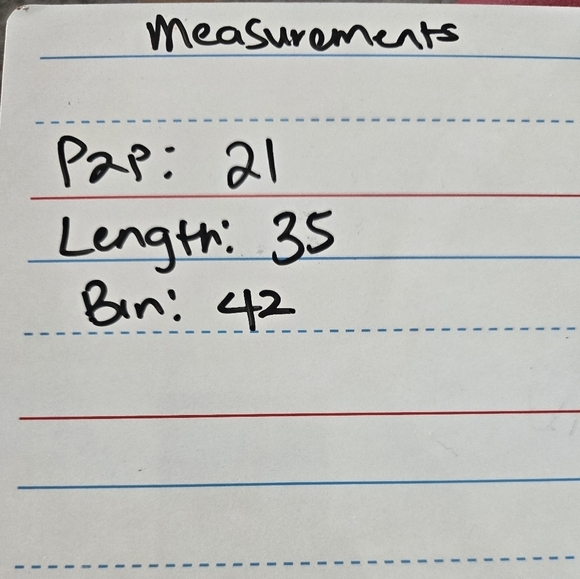 Measurements
P2P: 21
Length: 35
Bin: 42